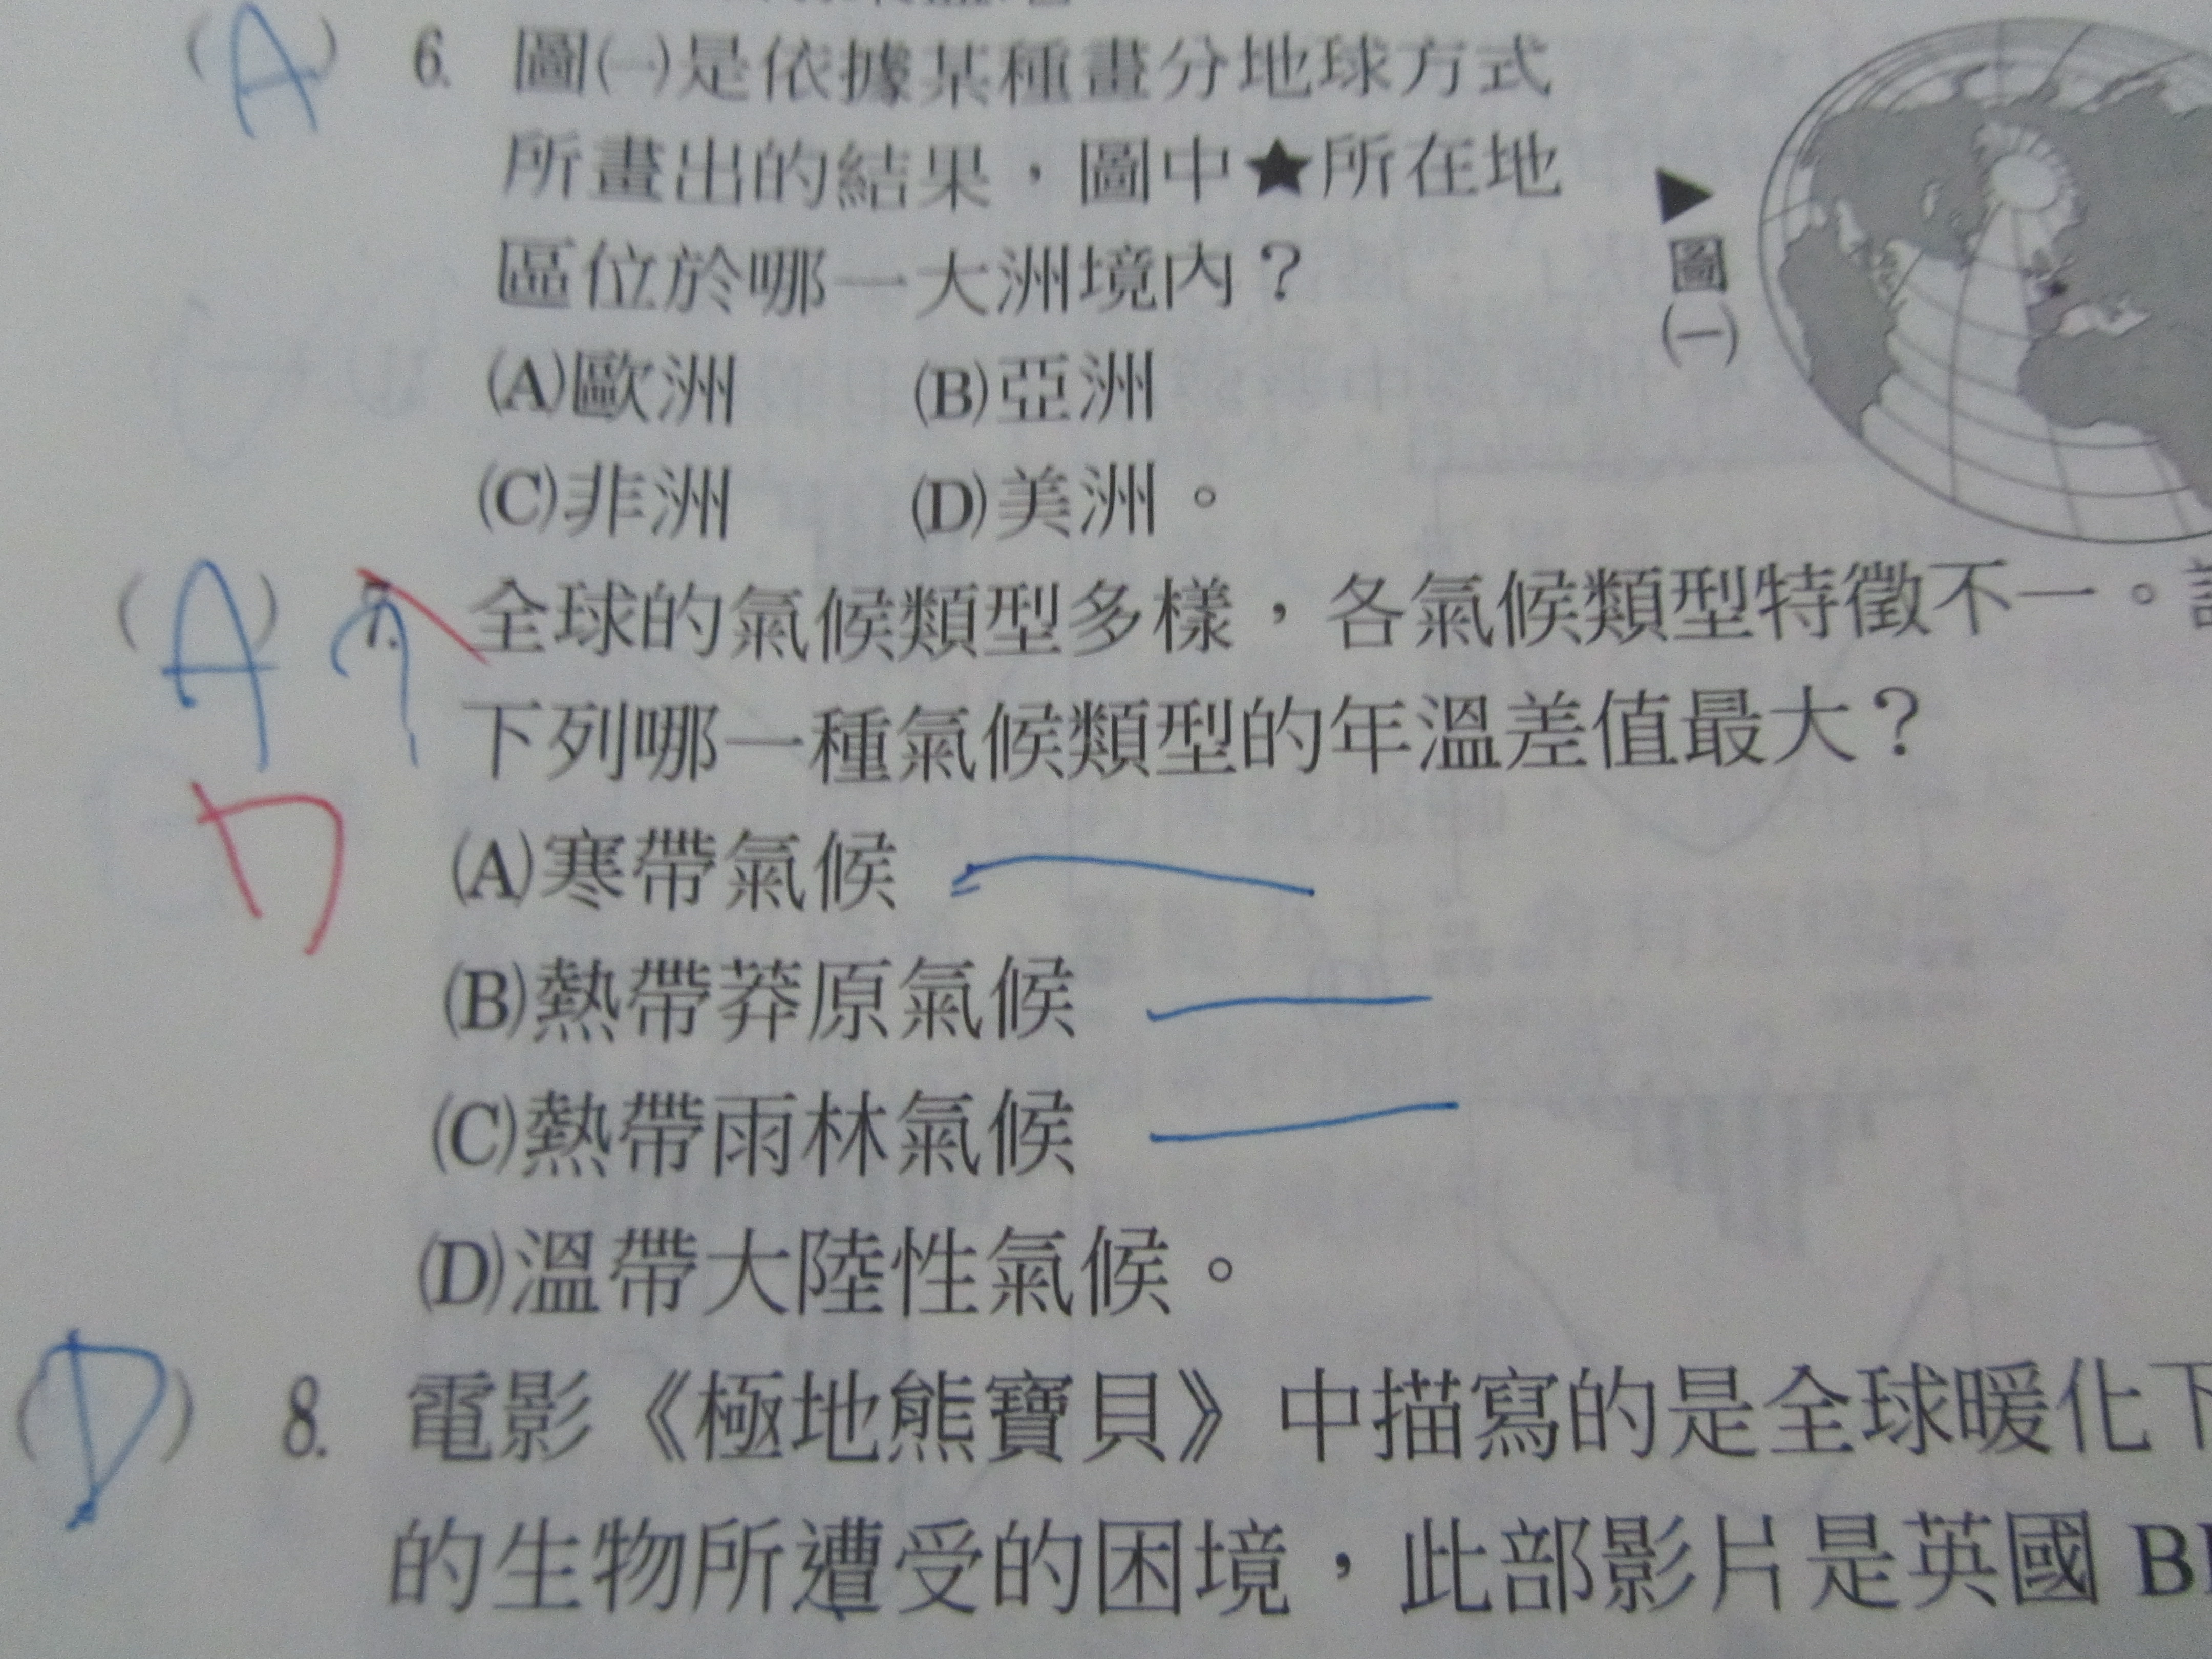 (A) 6. 圖㈠是依據某種畫分地球方式
所畫出的結果，圖中★所在地
區位於哪一大洲境內？
(A)歐洲 (B)亞洲
(C)非洲 (D)美洲。
▶圖㈠
(A) 7. 全球的氣候類型多樣，各氣候類型特徵不一。
下列哪一種氣候類型的年溫差值最大？
(A)寒帶氣候
(B)熱帶莽原氣候
(C)熱帶雨林氣候
(D)溫帶大陸性氣候。
(D) 8. 電影《極地熊寶貝》中描寫的是全球暖化下
的生物所遭受的困境，此部影片是英國